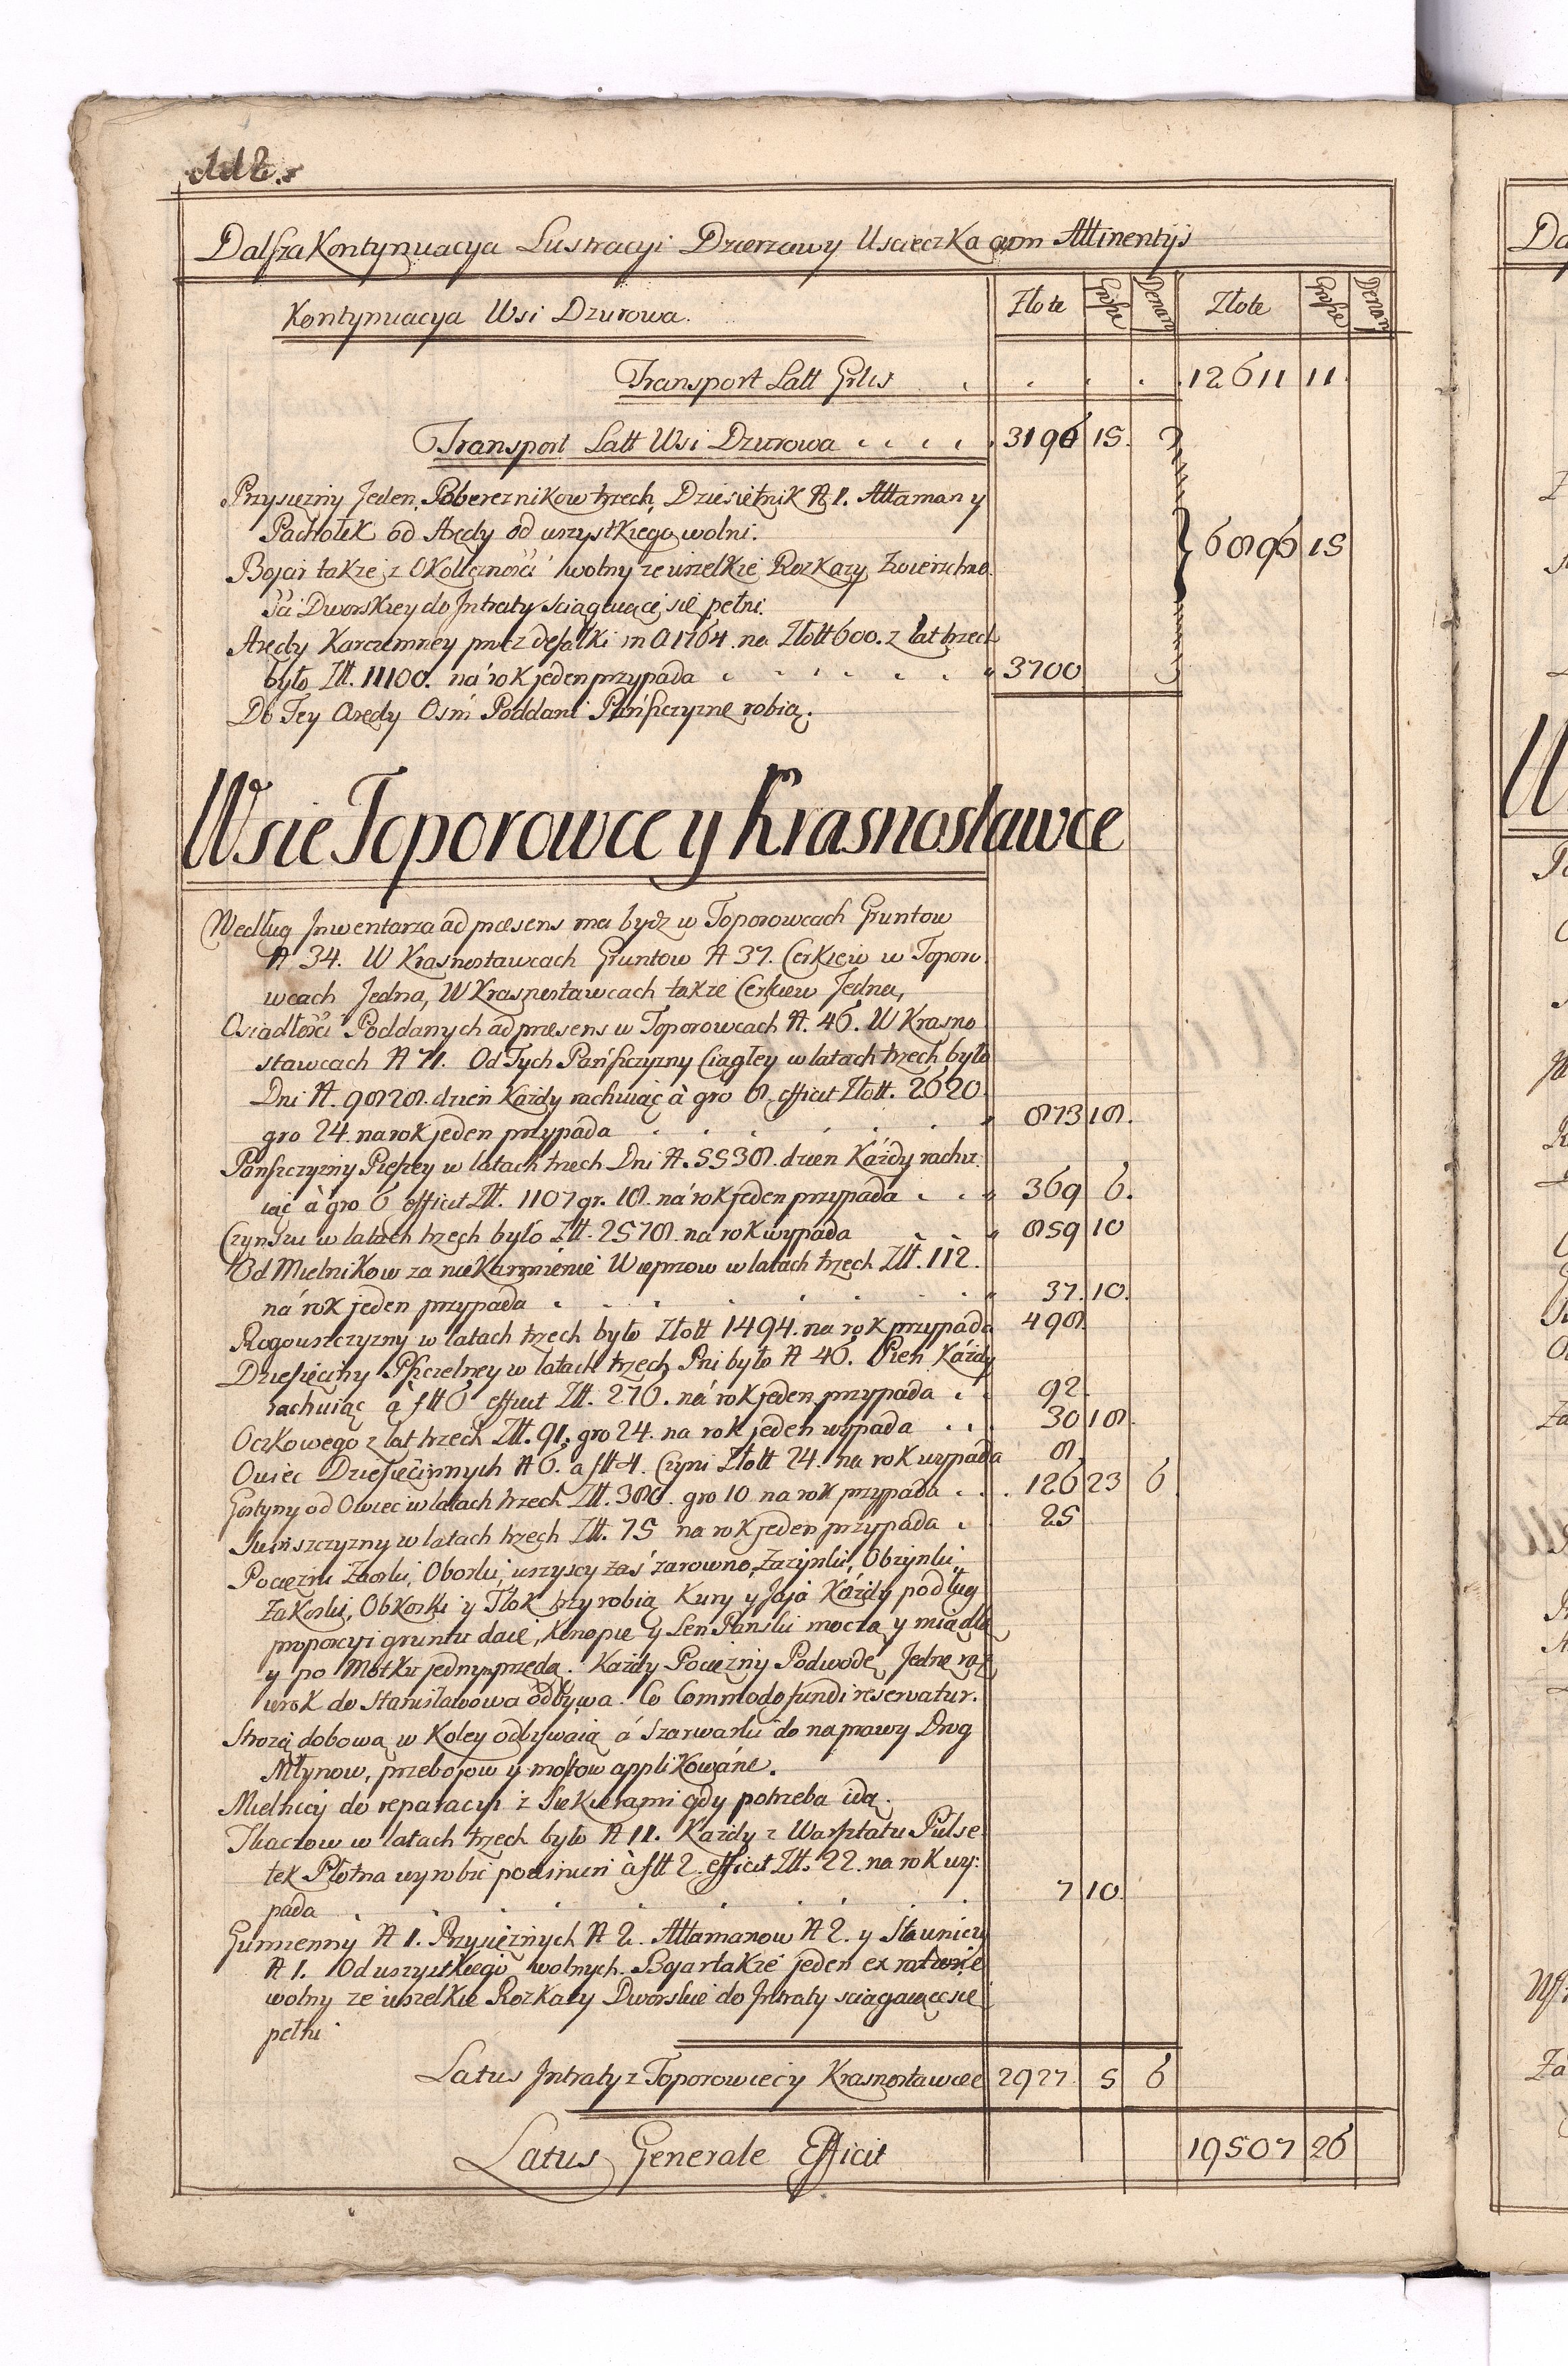 112.
Dalsza Kontynuacya Lustracyi Dzierzawy Uscieczka cum Attinentijs
Kontynuacya Wsi Dzurowa. Złote Grosze Denar Złote Grosze Denar
Transport Latt Grlis . . . . 12611 11.
Transport Latt Wsi Dzurowa . . . . 3196 15.
Przysiężny Jeden, Pobereznikow trzech, Dziesiętnik N 1. Attaman y
Pachołek od Arędy od wszystkiego wolni. 6896 15
Bojar także z Okoliczności wolny ze wszelkie Rozkazy Zwierzchno
ści Dworskiey do Intraty sciągaiące się pełni.
Arędy Karczemney precz defalki in A 1764. na Złott 600. z lat trzech
było Złt. 11100. na rok jeden przypada . . . . 3700
Do Tey Arędy Ośm Poddani Pańszczyznę robią.
Wsie Toporowce y Krasnosławce
Według Inwentarza ad præsens ma bydz w Toporowcach Gruntow
N 34. W Krasnosławcach Gruntow N 37. Cerkiew w Toporo
wcach Jedna, W Krasnosławcach także Cerkiew Jedna,
Osiadłości Poddanych ad præsens w Toporowcach N. 46. W Krasno
sławcach N 71. Od Tych Pańszczyzny Ciągłey w latach trzech było
Dni N. 9828. dzień Każdy rachuiąc à gro 8. efficit Złott. 2620
gro 24. na rok jeden przypada . . . . 873 18.
Pańszczyzny Pieszey w latach trzech Dni N. 5538. dzień Każdy rachu:
iąc à gro 6 efficit Złt. 1107 gr. 18. na rok jeden przypada . . . 369 6.
Czynszu w latach trzech było Złt. 2578. na rok wypada 859 10
Od Mielnikow za nie Karmienie Wieprzow w latach trzech Złt. 112.
na rok jeden przypada . . . . 37. 10.
Rogowszczyzny w latach trzech było Złott 1494. na rok przypada 498.
Dziesięciny Pszczelney w latach trzech Pni było N 46. Pień Każdy
rachuiąc à fltt 6 efficit Złt. 276. na rok jeden przypada . . 92.
Oczkowego z lat trzech Złt. 91. gro 24. na rok jeden wypada . . . 30 18.
Owiec Dziesięcinnych N 6. a fltt 4. Czyni Złott 24. na rok wypada 8.
Gostyny od Owiec w latach trzech Złt. 380. gro 10 na rok przypada . . 126 23 6.
Swinszczyzny w latach trzech Złt. 75 na rok jeden przypada . 25
Pociężni Zaorki, Oborki, wszyscy zaś zarowno, Zazynki, Obzynki,
Zakoski, Obkoski y Tłok trzy robią Kury y Jaja Każdy podług
proporcyi gruntu daie, Konopie y Len Panski moczą y miądlą
y po Motku jednym przędą. Każdy Pociężny Podwodę Jednę raz
wrok do Stanisławowa odbywa. Co Commodo fundi reservatur.
Strożą dobową w Koley odbywaią á Szarwarki do naprawy Drog
Młynow, przebojow y mostow applikowáne.
Mielnicy do reparacyi z Siekierami gdy potrzeba idą.
Tkaczow w latach trzech było N 11. Każdy z Warsztatu Pułse
tek Płotna wyrobic powinien à fltt 2. efficit Złt. 22. na rok wy:
pada . . . . 7 10
Gumienny N 1. Przysiężnych N 2. Attamanow N 2. y Stawniczy
N 1. Od wszystkiego wolnych. Bojar także jeden ex ratione
wolny ze wszelkie Rozkazy Dworskie do Intraty sciągaiące się
pełni.
Latus Intraty z Toporowiec y Krasnosławiec 2927. 5 6
Latus Generale Efficit 19507 26